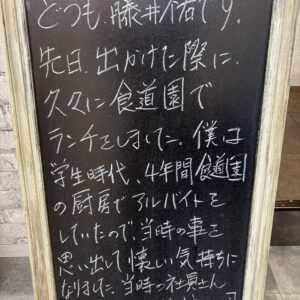 どうも、藤井佑です。
先日、出かけた際に、
久々に食道園で
ランチをしました。僕は
学生時代、4年間食道園
の厨房でアルバイトを
していたので、当時の事を
思い出して懐しい気持ちに
なりました。当時の社員さん